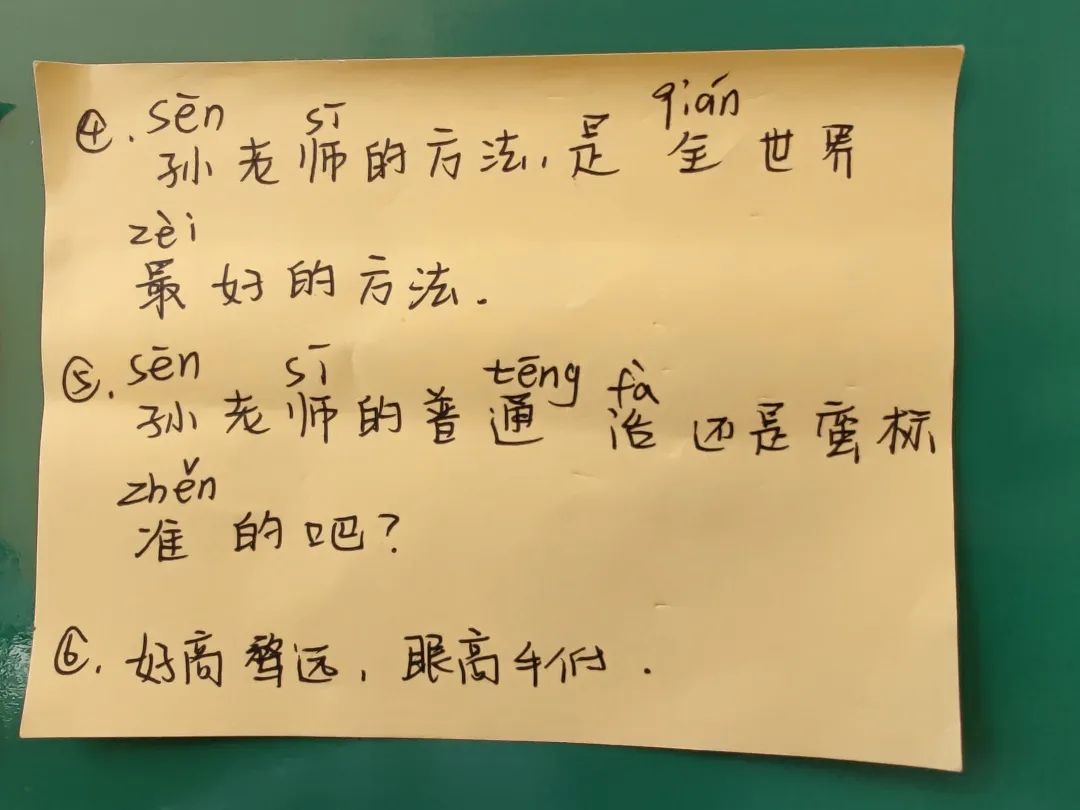 sēn sī qián
④. 孙老师的方法,是全世界
zèi
最好的方法.
sēn sī tēng fà
⑤. 孙老师的普通话还是蛮标
zhěn
准的吧?
⑥. 好高骛远,眼高手低.